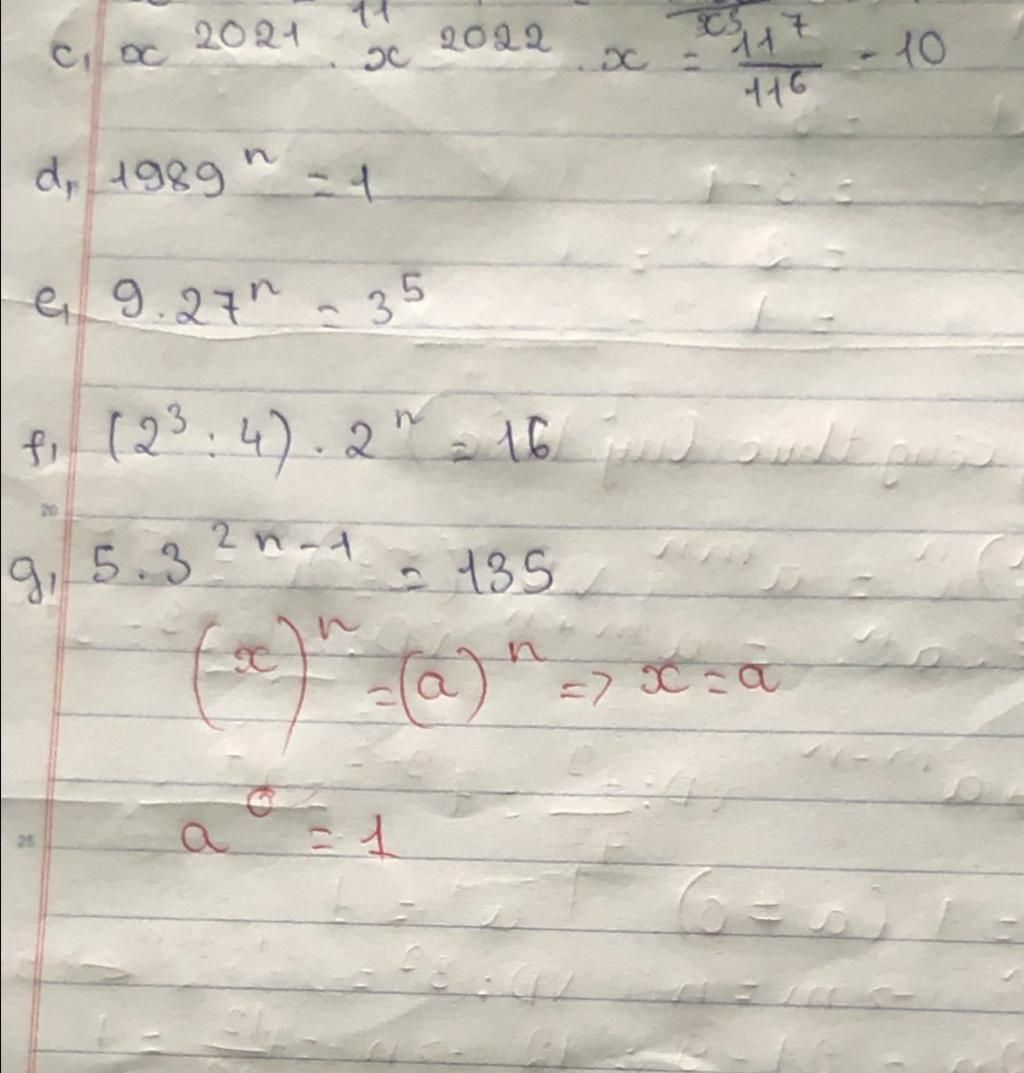 c, x^2021 . x^2022 . x = 11^7/11^6 - 10
d, 1989^n = 1
e, 9 . 27^n = 3^5
f, (2^3 : 4) . 2^n = 16
20
g, 5 . 3^(2n-1) = 135
(x)^n = (a)^n => x = a
a^0 = 1
25